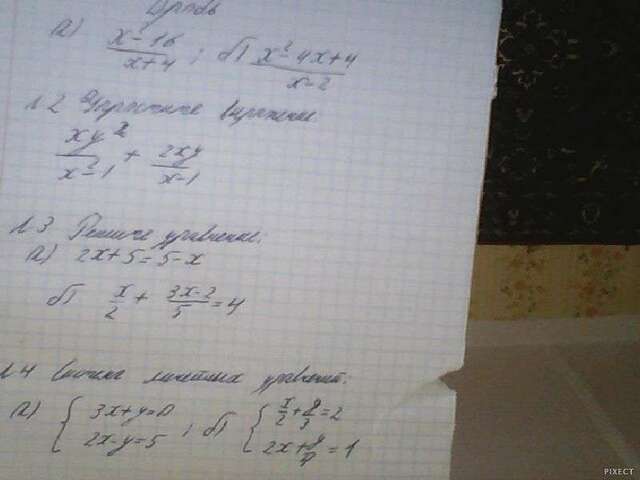 Дробь
а) x²-16/x+4 ; б) x²-4x+4/x-2
N 2 Упростите выражение
xy²/x²-1 + 2xy/x-1
N 3 Решите уравнение:
а) 2x+5=5-x
б) x/2 + 3x-2/5 = 4
N 4 Система линейных уравнений:
а) { 3x+y=0 ; б) { x/2 + y/3 = 2
2x-y=5 2x+ = 1
PIXECT